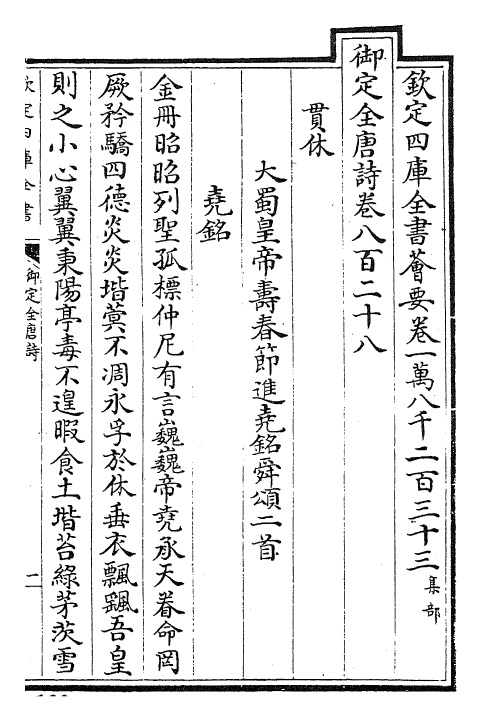 欽定四庫全書薈要卷一萬八千二百三十三集部
御定全唐詩卷八百二十八
貫休
大蜀皇帝壽春節進堯銘舜頌二首
堯銘
金冊昭昭列聖孤標仲尼有言巍巍帝堯承天眷命罔
厥矜驕四德炎炎堦蓂不凋永孚於休垂衣飄颻吾皇
則之小心翼翼秉陽亭毒不遑暇食土堦苔綠茅茨雪
欽定四庫全書
御定全唐詩